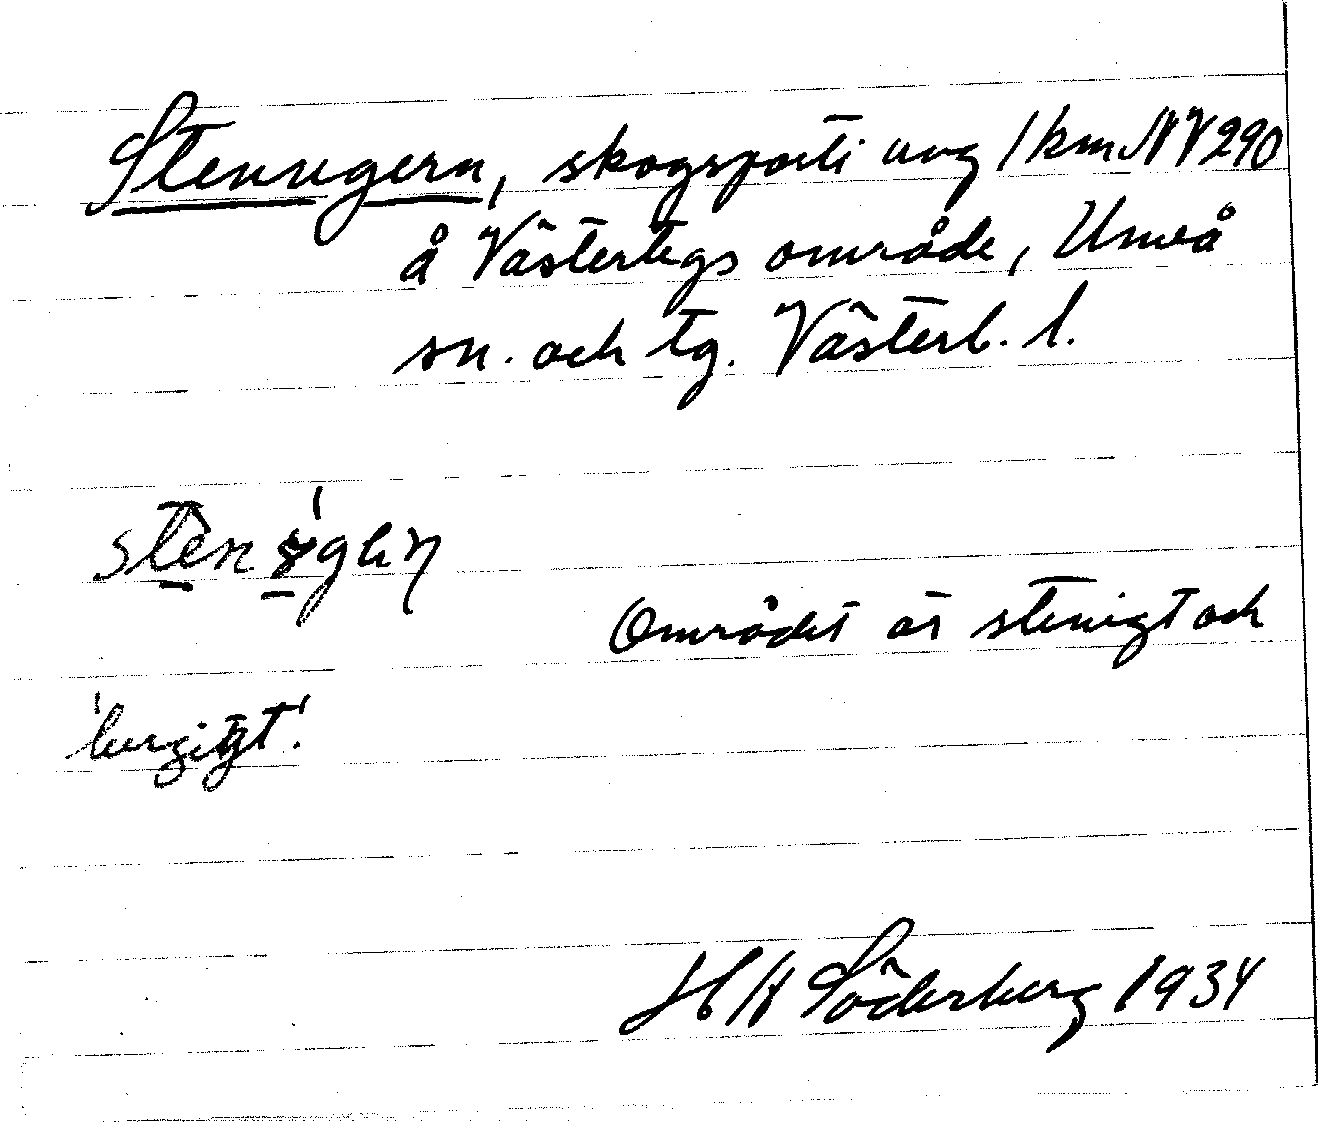 Stenugern, skogsparti ung 1 km NV 290
å Västertegs område, Umeå
sn. och tg. Västerb. l.
Området är stenigt och
'bergigt'.
Söderberg 1934